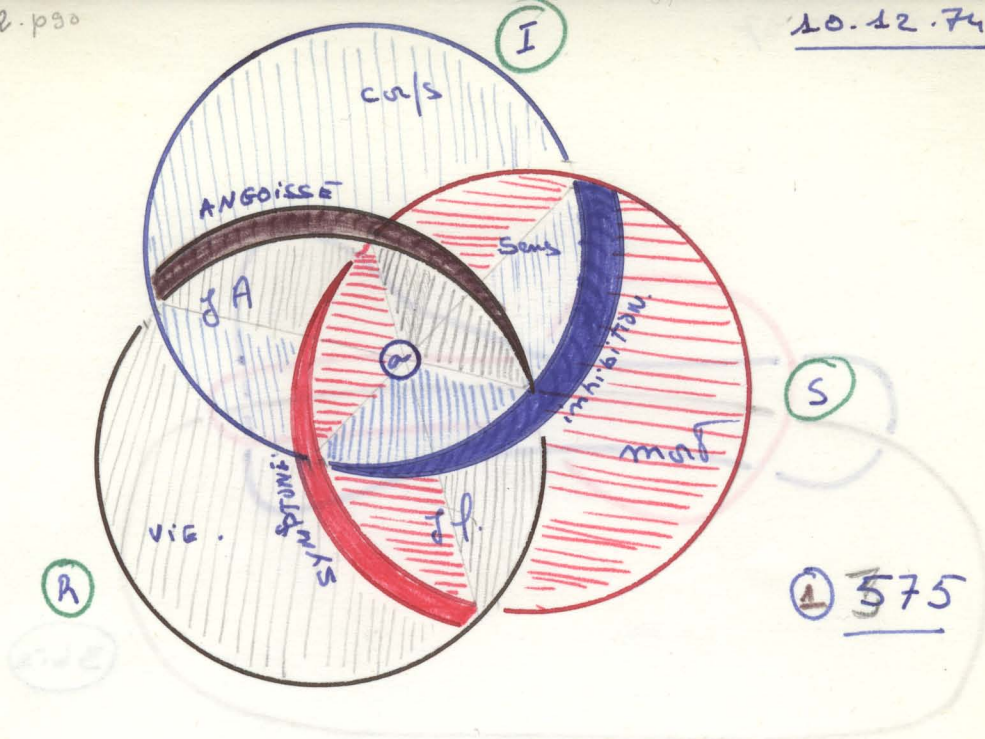 2.p90
I
10.12.74
corps
ANGOISSE
Sens
JA
a
INHIBITION
S
mort
SYMPTÔME
Jφ.
ViE.
R
① 3575